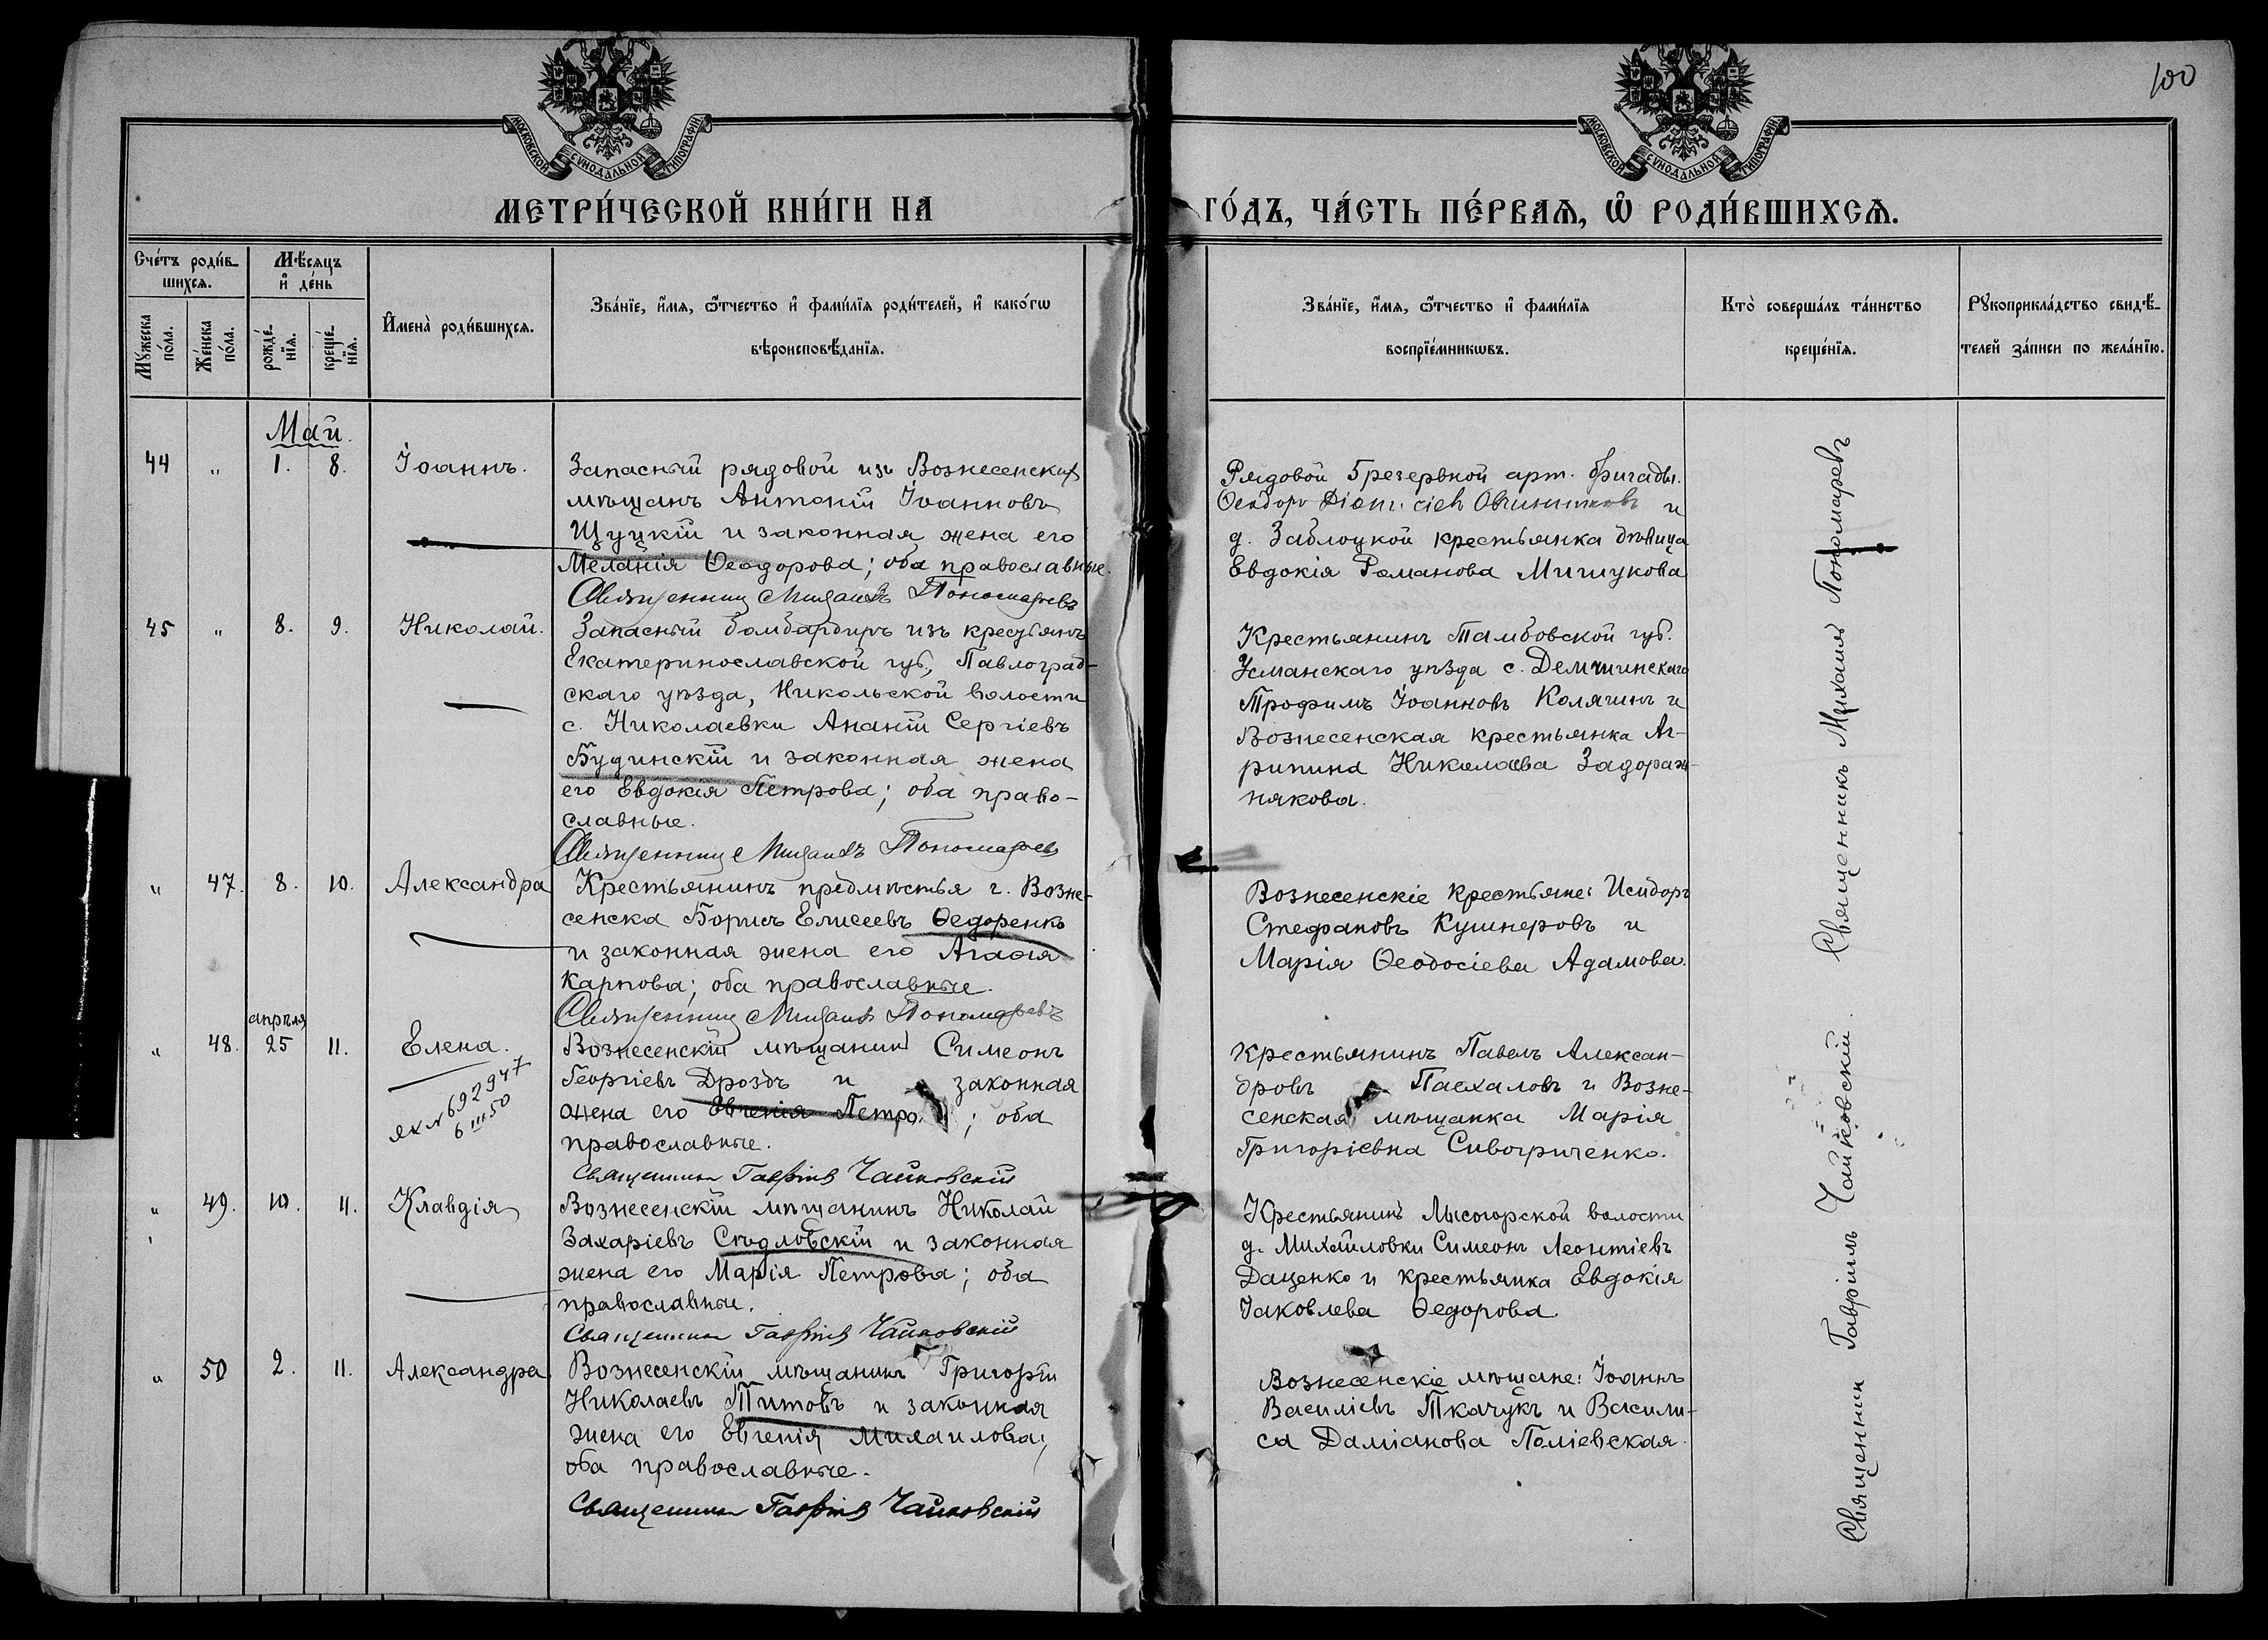 100
МОСКОВСКОЙ СѴНОДАЛЬНОЙ ТИПОГРАФІИ
МОСКОВСКОЙ СѴНОДАЛЬНОЙ ТИПОГРАФІИ
МЕТРИ́ЧЕСКОЙ КНИ́ГИ НА
ГО́ДЪ, ЧА́СТЬ ПЕ́РВАѦ, Ѡ҆ РОДИ́ВШИХСѦ.
Сче́тъ роди́в-
шихсѧ.
Мꙋжеска по́ла.
Же́нска по́ла.
Мѣ́сѧцъ и҆ де́нь
рожде́-
нїѧ.
креще́-
нїѧ.
И҆мена̀ роди́вшихсѧ.
Зва́нїе, и҆́мѧ, ѻ҆́тчество и҆ фамі́лїѧ роди́телей, и҆ како́гѡ
вѣроисповѣ́данїѧ.
Зва́нїе, и҆́мѧ, ѻ҆́тчество и҆ фамі́лїѧ
воспрїе́мникѡвъ.
Кто̀ соверша́лъ та́инство
креще́нїѧ.
Рꙋкоприкла́дство свидѣ́-
телей за́писи по жела́нїю.
Май.
44 " 1. 8. Іоаннъ.
Запасный рядовой изъ Вознесенскихъ
мѣщанъ Антоній Іоанновъ
Щуцкій и законная жена его
Меланія Ѳеодорова; оба православные.
Священникъ Михаилъ Пономаревъ
Рядовой 5 резервной арт. бригады
Ѳеодоръ Діонисіевъ Овчинниковъ и
д. Заблоцкой крестьянка дѣвица
Евдокія Романова Мишукова
45 " 8. 9. Николай.
Запасный бомбардиръ изъ крестьянъ
Екатеринославской губ., Павлоград-
скаго уѣзда, Никольской волости
с. Николаевки Ананій Сергіевъ
Будинскій и законная жена
его Евдокія Петрова; оба право-
славные.
Священникъ Михаилъ Пономаревъ
Крестьянинъ Тамбовской губ.
Усманскаго уѣзда с. Демшинскаго
Трофимъ Іоанновъ Колягинъ и
Вознесенская крестьянка Аг-
рипина Николаева Задорож-
някова.
" 47. 8. 10. Александра
Крестьянинъ предмѣстья г. Возне-
сенска Борисъ Елисеевъ Ѳедоренко
и законная жена его Агаѳія
Карпова; оба православные.
Священникъ Михаилъ Пономаревъ
Вознесенскіе крестьяне: Исидоръ
Стефановъ Кушнеровъ и
Марія Ѳеодосіева Адамова.
Священникъ Михаилъ Пономаревъ
апрѣля
" 48. 25 11. Елена.
692947
6 III 50
Вознесенскій мѣщанинъ Симеонъ
Георгіевъ Дроздъ и законная
жена его Евгенія ; оба
православные.
Священникъ Гавріилъ Чайковскій
Крестьянинъ Павелъ Алексан-
дровъ Пасхаловъ и Возне-
сенская мѣщанка Марія
Григоріевна Сивогриченко.
" 49. 10. 11. Клавдія
Вознесенскій мѣщанинъ Николай
Захаріевъ Сѣдловскій и законная
жена его Марія Петрова; оба
православные.
Священникъ Гавріилъ Чайковскій
Крестьянинъ Лысогорской волости
д. Михайловки Симеонъ Леонтіевъ
Даценко и крестьянка Евдокія
Іаковлева Ѳедорова
" 50 2. 11. Александра
Вознесенскій мѣщанинъ Григорій
Николаевъ Титовъ и законная
жена его Евгенія Михаилова;
оба православные.
Священникъ Гавріилъ Чайковскій
Вознесенскіе мѣщане: Іоаннъ
Василіевъ Ткачукъ и Васили-
са Даміанова Поліевская.
Священникъ Гавріилъ Чайковскій.